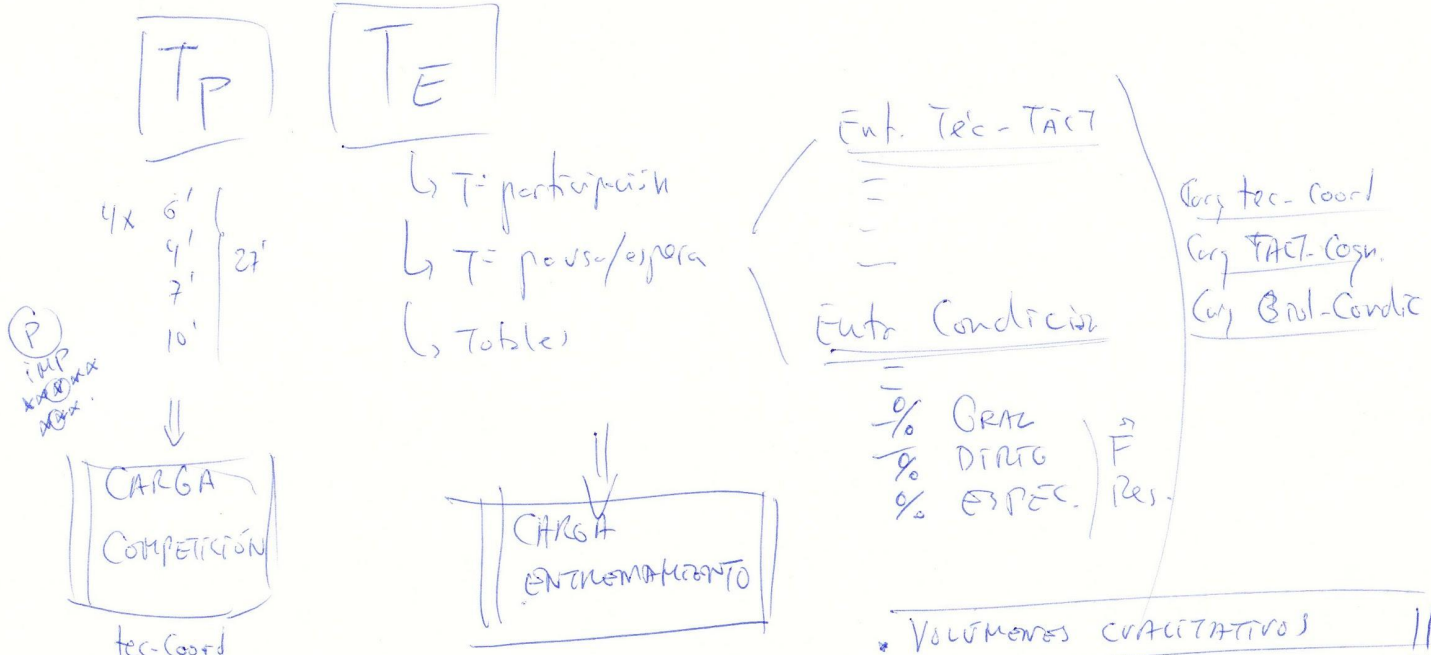 TP
4x 6'
4'
7'
10'
27'
P
IMP
CARGA
COMPETICIÓN
tec-Coord
TE
T= participación
T= pausa/espera
Totales
CARGA
ENTRENAMIENTO
Ent. Téc-TÁCT
Entr Condición
% GRAL
% DIRIG
% ESPEC.
F
Res.
Carg tec-Coord
Carg TACT-Cogn.
Carg Biol-Condic
• VOLÚMENES CUALITATIVOS